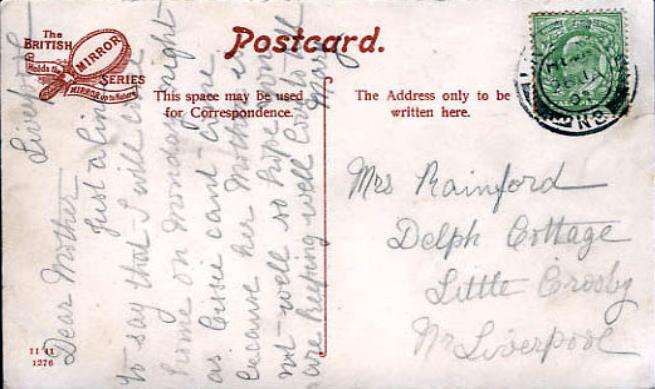 The
BRITISH
MIRROR
Holds the
SERIES
MIRROR up to Nature
Postcard.
This space may be used
for Correspondence.
The Address only to be
written here.
Liverpool
Dear Mother
Just a line
to say that I will come
home on Monday night
as Cissie cant come
because her Mother is
not well so hope you
are keeping well love to all
Mary
Mrs Rainford
Delph Cottage
Little Crosby
Nr Liverpool
11 11
1276